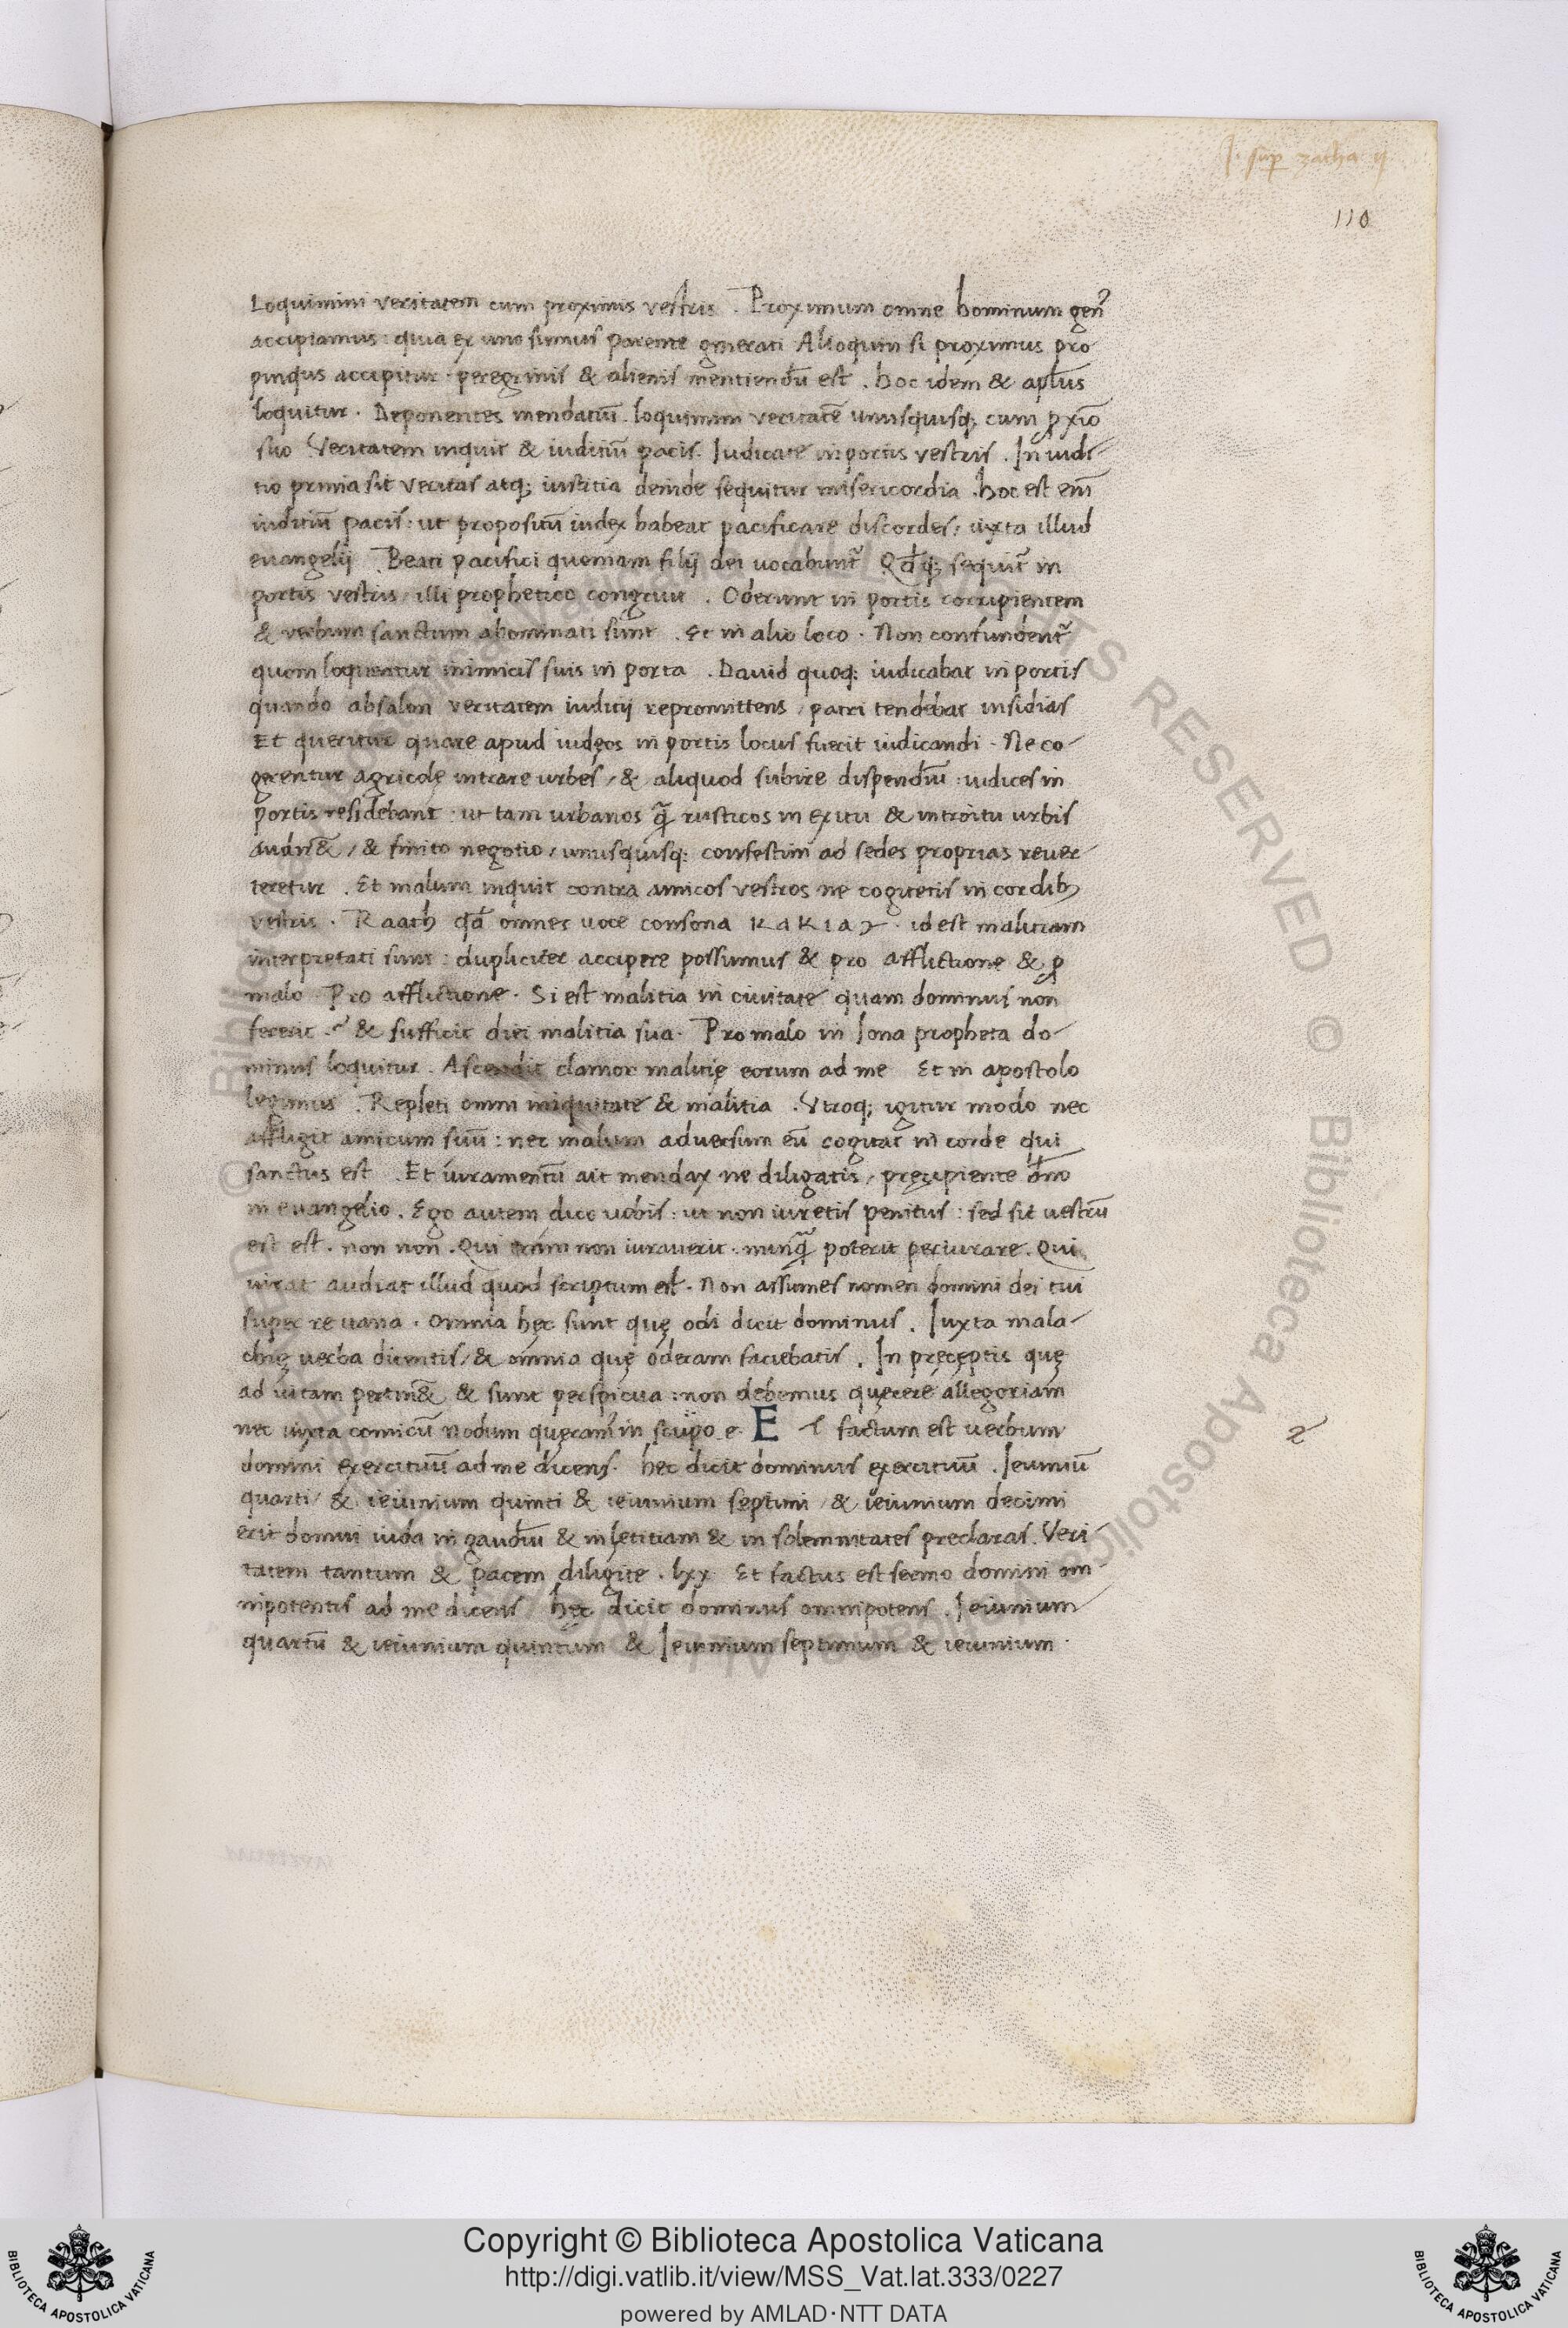 J. sup zacha ij
110
Loquimini veritatem cum proximis vestris . Proximum omne hominum gen⁹
accipiamus : quia ex uno sumus parente generati Alioquin si proximus pro
pinqus accipitur · peregrinis & alienis mentiendū est . hoc idem & apl̄us
loquitur . Deponentes mendatiū . loquimini veritatē unusquisq; cum ꝓxīo
suo Veritatem inquit & iuditiū pacis . Iudicate in portis vestris . In iudi
tio prima sit veritas atq; iustitia deinde sequitur misericordia . hoc est eīn
iuditiū pacis : ut propositū iudex habeat pacificare discordes / iuxta illud
euangelij . Beati pacifici quoniam filij dei uocabunt᷑ Qd̄q; sequit᷑ in
portis vestris / illi prophetico congruit . Oderunt in portis corripientem
& verbum sanctum abominati sunt . Et in alio loco . Non confundent᷑
quom loquentur inimicis suis in porta . Dauid quoq; iudicabat in portis
quando absalon veritatem iuditij repromittens / patri tendebat insidias
Et queritur quare apud iudęos in portis locus fuerit iudicandi . Ne co
gerentur agricolę intrare urbes / & aliquod subire dispendiū : iudices in
portis residebant : ut tam urbanos q̄ rusticos in exitu & introitu urbis
audir& / & finito negotio / unusquisq; confestim ad sedes proprias reuer
teretur . Et malum inquit contra amicos vestros ne cogitetis in cordib;
vestris . Raath qd̄ omnes uoce consona ΚαΚιαν · id est malitiam
interpretati sunt : dupliciter accipere possumus & pro afflictione & ꝓ
malo Pro afflictione . Si est malitia in ciuitate quam dominus non
fecerit .? & sufficit diei malitia sua . Pro malo in Iona propheta do
minus loquitur . Ascendit clamor malitię eorum ad me Et in apostolo
legimus . Repleti omni iniquitate & malitia . Utroq; igitur modo nec
affligit amicum suū : nec malum aduersum eū cogitat in corde qui
sanctus est . Et iuramentū ait mendax ne diligatis / pręcipiente dn̄o
in euangelio . Ego autem dico uobis : ut non iuretis penitus : sed sit uestrū
est est . non non . Qui enim non iurauerit . nunq̄ poterit periurare . Qui
iurat audiat illud quod scriptum est . Non assumes nomen domini dei tui
super re uana . Omnia hęc sunt quę odi dicit dominus . Iuxta mala
chię uerba dicentis / & omnia quę oderam faciebatis . In pręceptis quę
ad uitam pertin& & sunt perspicua : non debemus quęrere allegoriam
nec iuxta comicū nodum quęram᷒ in scirpo . Et factum est uerbum
domini exercituū ad me dicens . hęc dicit dominus exercituū . Ieiuniū
quarti / & ieiunium quinti & ieiunium septimi / & ieiunium decimi
erit domui iuda in gaudiū & in lętitiam & in solemnitates preclaras . Veri
tatem tantum & pacem diligite . lxx Et factus est sermo domini om
nipotentis ad me dicens hęc dicit dominus omnipotens . Ieiunium
quartū & ieiunium quintum & Ieiunium septimum & ieiunium
Copyright © Biblioteca Apostolica Vaticana
http://digi.vatlib.it/view/MSS_Vat.lat.333/0227
powered by AMLAD·NTT DATA
BIBLIOTECA APOSTOLICA VATICANA
BIBLIOTECA APOSTOLICA VATICANA